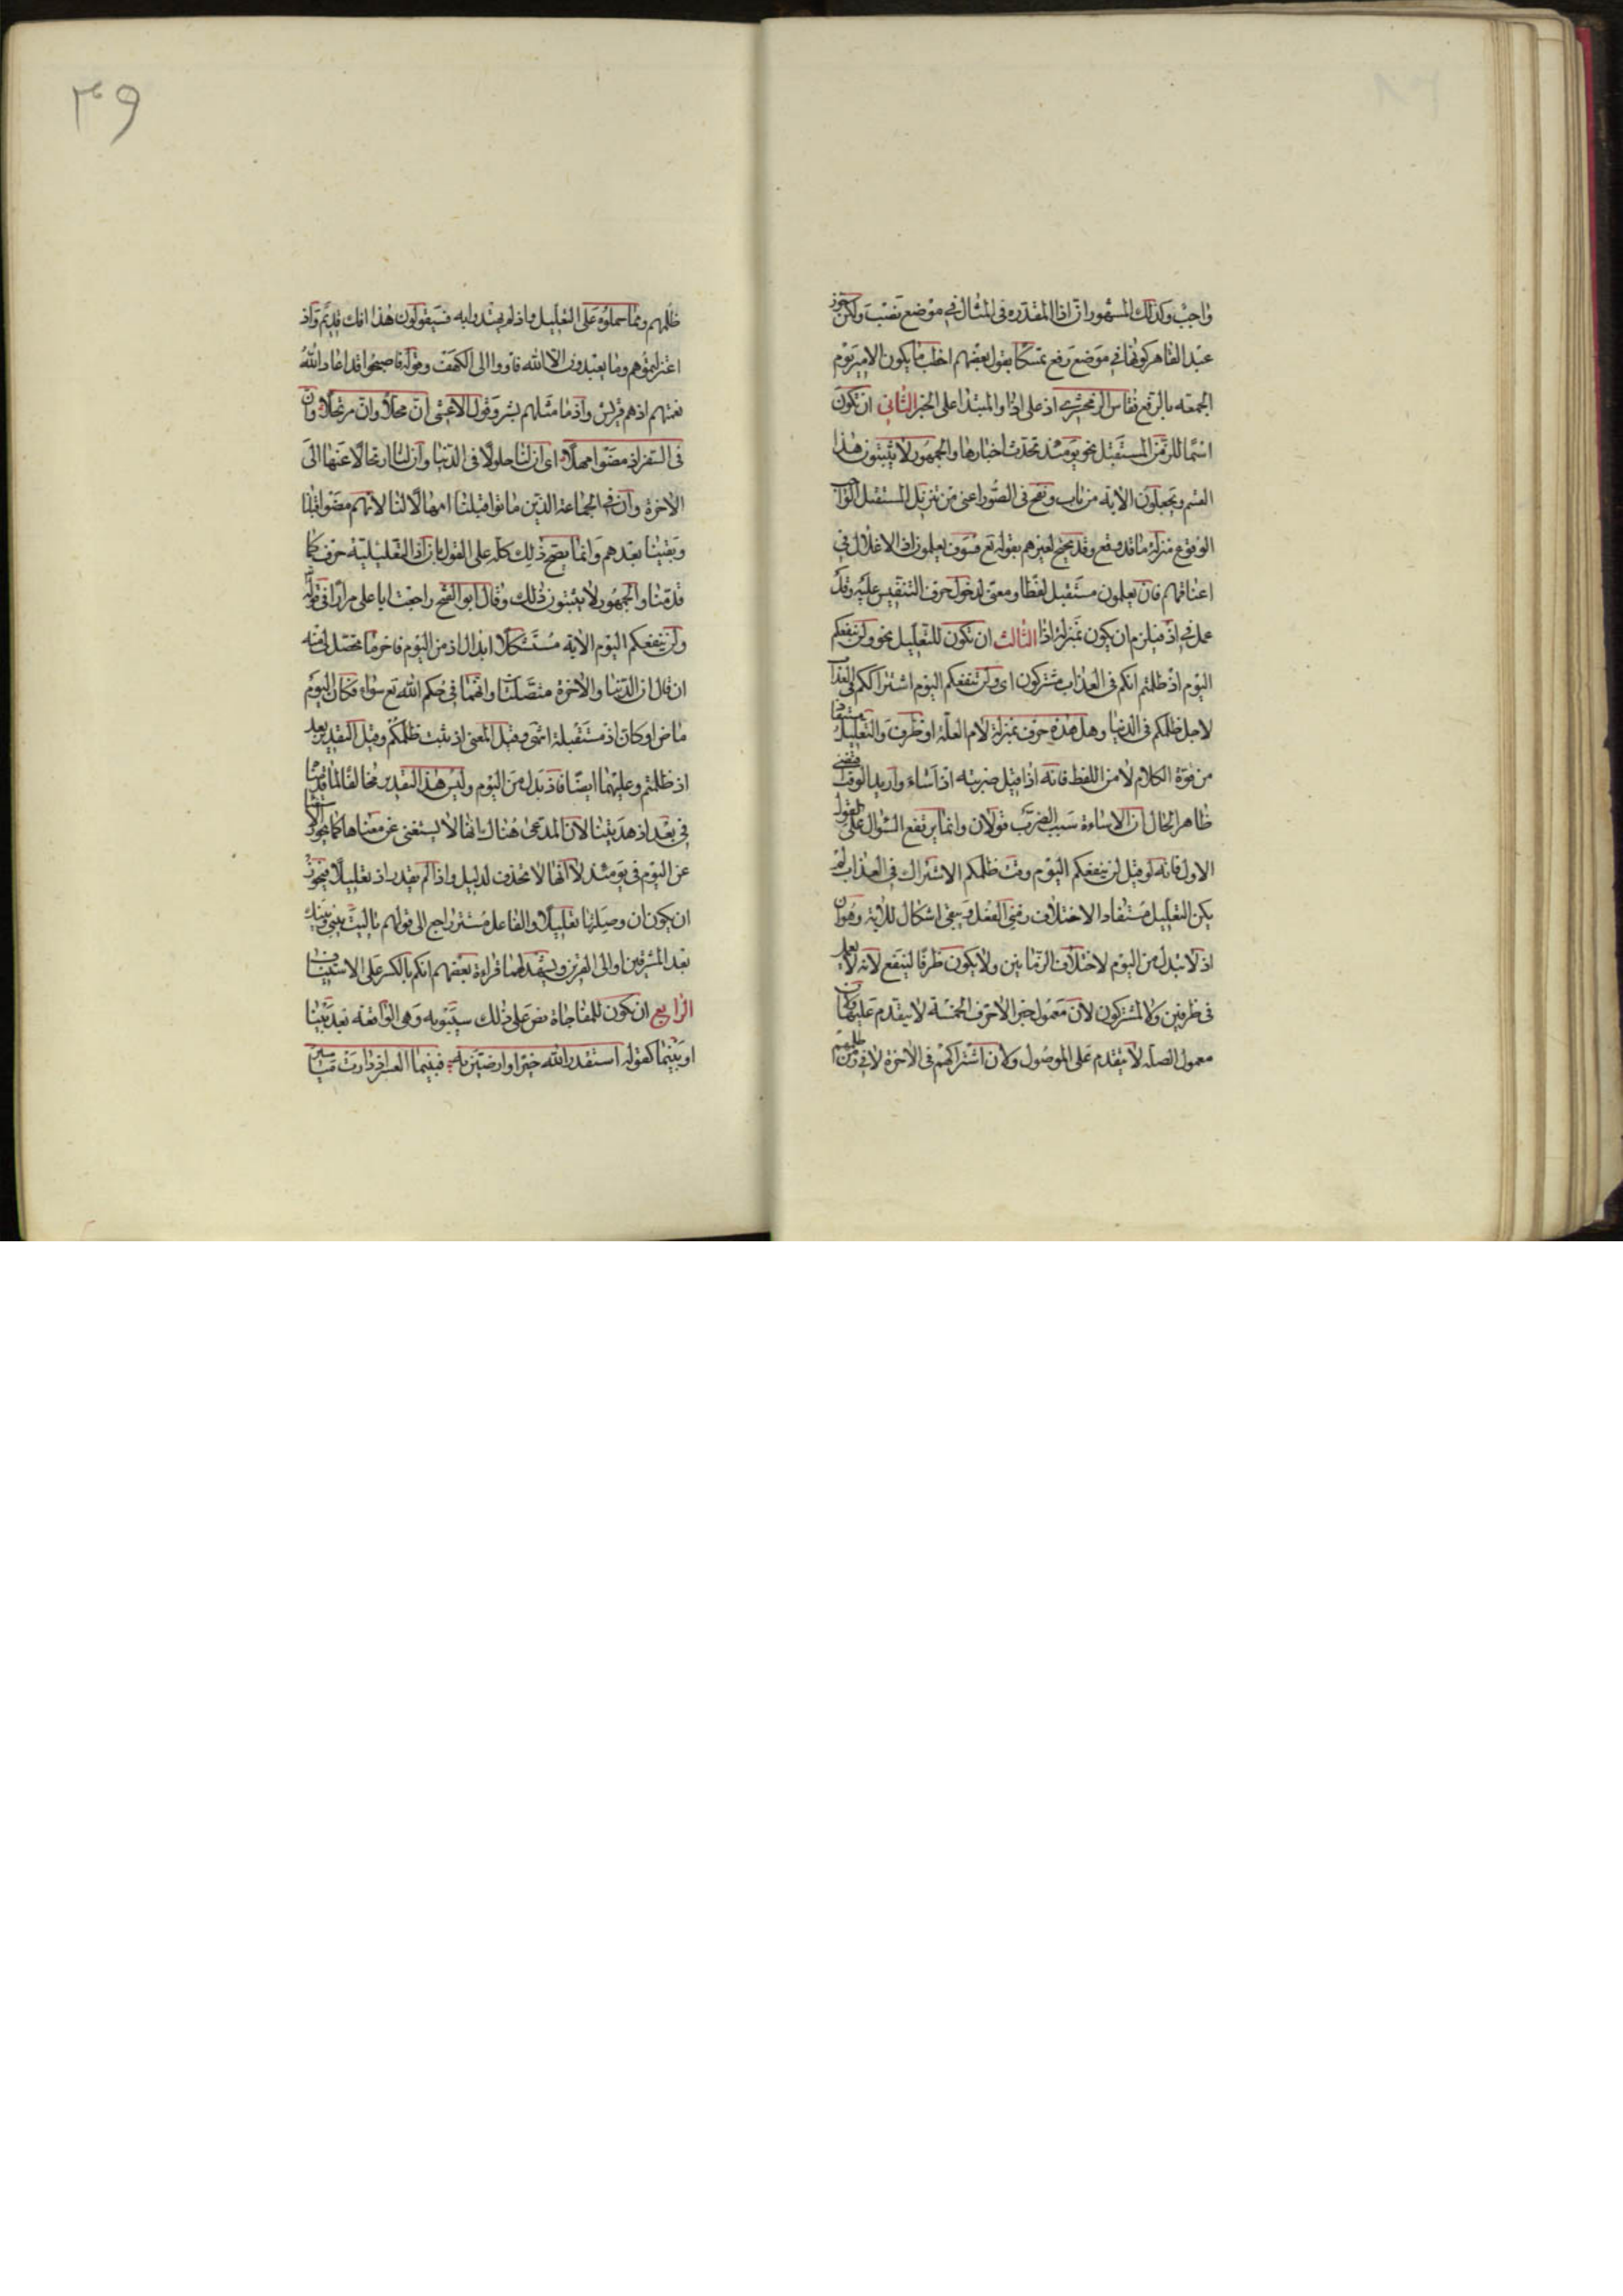 واجب وكذلك المشهور ان اذا المقدره فى المثال فى موضع نصب ولكن جوز
عبد القاهر كونها فى موضع رفع تمسكا بقول بعضهم اخطب ما يكون الامير يوم
الجمعه بالرفع فقاس الزمخشرى اذ على اذا والمبتدا على الخبر الثانى ان تكون
اسما للزمن المستقبل نحو يومئذ تحدث اخبارها والجمهور لا يثبتون هذا
القسم ويجعلون الاية من باب ونفخ فى الصور اعنى من تنزيل المستقبل الواجب
الوقوع منزلة ما قد وقع وقد يحتج لغيرهم بقوله تع فسوف يعلمون اذ الاغلال فى
اعناقهم فان يعلمون مستقبل لفظا ومعنى لدخول حرف التنفيس عليه وقد
عمل فى اذ فيلزم ان يكون بمنزلة اذا الثالث ان تكون للتعليل نحو ولن ينفعكم
اليوم اذ ظلمتم انكم فى العذاب مشتركون اى ولن ينفعكم اليوم اشتراككم فى العذاب
لاجل ظلمكم فى الدنيا وهل هذه حرف بمنزلة لام العلة او ظرف والتعليل مستفاد
من قوة الكلام لا من اللفظ فانه اذا قيل ضربته اذ اساء واريد الوقت اقتضى
ظاهر الحال ان الاساءة سبب الضرب قولان وانما يرتفع السؤال على القول
الاول فانه لو قيل لن ينفعكم اليوم وقت ظلمكم الاشتراك فى العذاب لم
يكن التعليل مستفادا لاختلاف زمنى الفعل ويبقى اشكال للاية وهو ان
اذ لا تبدل من اليوم لاختلاف الزمانين ولا يكون ظرفا لينفع لانه لا يعمل
فى ظرفين ولا لمشتركون لان معمول خبر الاحرف الخمسة لا يتقدم عليها ولان
معمول الصله لا يتقدم على الموصول ولان اشتراكهم فى الاخرة لا فى زمن ظلمهم
٣٩
ظلمهم ومما حملوه على التعليل واذ لم يهتدوا به فسيقولون هذا افك قديم واذ
اعتزلتموهم وما يعبدون الا الله فاووا الى الكهف وقوله فاصبحوا قد اعاد الله
نعمتهم اذ هم قريش واذ ما مثلهم بشر وقول الاعشى ان محلا وان مرتحلا وان
فى السفر اذ مضوا مهلا اى ان لنا حلولا فى الدنيا وان لنا ارتحالا عنها الى
الاخرة وان فى الجماعة الذين ماتوا قبلنا امهالا لنا لانهم مضوا قبلنا
وبقينا بعدهم وانما يصح ذلك كله على القول بان اذ التعليلية حرف كما
قدمنا والجمهور لا يثبتون ذلك وقال ابو الفتح راجعت ابا على مرارا فى قوله
ولن ينفعكم اليوم الاية مستشكلا ابدال اذ من اليوم فاخر ما تحصل لى منه
ان قال ان الدنيا والاخرة متصلتان وانهما فى حكم الله تع سواء فكان اليوم
ماض او كان اذ مستقبلة انتهى وقيل المعنى اذ ثبت ظلمكم وقيل التقدير بعد
اذ ظلمتم وعليهما ايضا فاذ بدل من اليوم وليس هذا التقدير مخالفا لما قدمنا
فى بعد اذ هديتنا لان المدعى هناك انها لا يستغنى عن معناها كما يجوز الاستغنا
عن اليوم فى يومئذ لا انها لا تحذف لدليل واذا لم يقدر اذ تعليلا فيجوز
ان يكون ان وصلتها تعليلا والفاعل مستتر راجع الى قولهم يا ليت بينى وبينك
بعد المشرقين او الى القرين ويشهد لهما قراءة بعضهم انكم بالكسر على الاستيناف
الرابع ان تكون للمفاجاة نص على ذلك سيبويه وهى الواقعه بعد بينا
او بينما كقوله استقدر الله خيرا وارضين به فبينما العسر اذ دارت مياسير